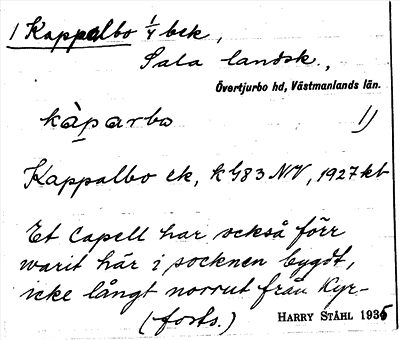 1 Kappalbo 1/4 bck,
Sala landsk.,
Övertjurbo hd, Västmanlands län.
kàparbo 1)
Kappalbo ek, k G83 NV, 1927 kt
Et Capell har också förr
warit här i socknen bygdt,
icke långt norrut från Kyr-
(forts.) HARRY STÅHL 1935